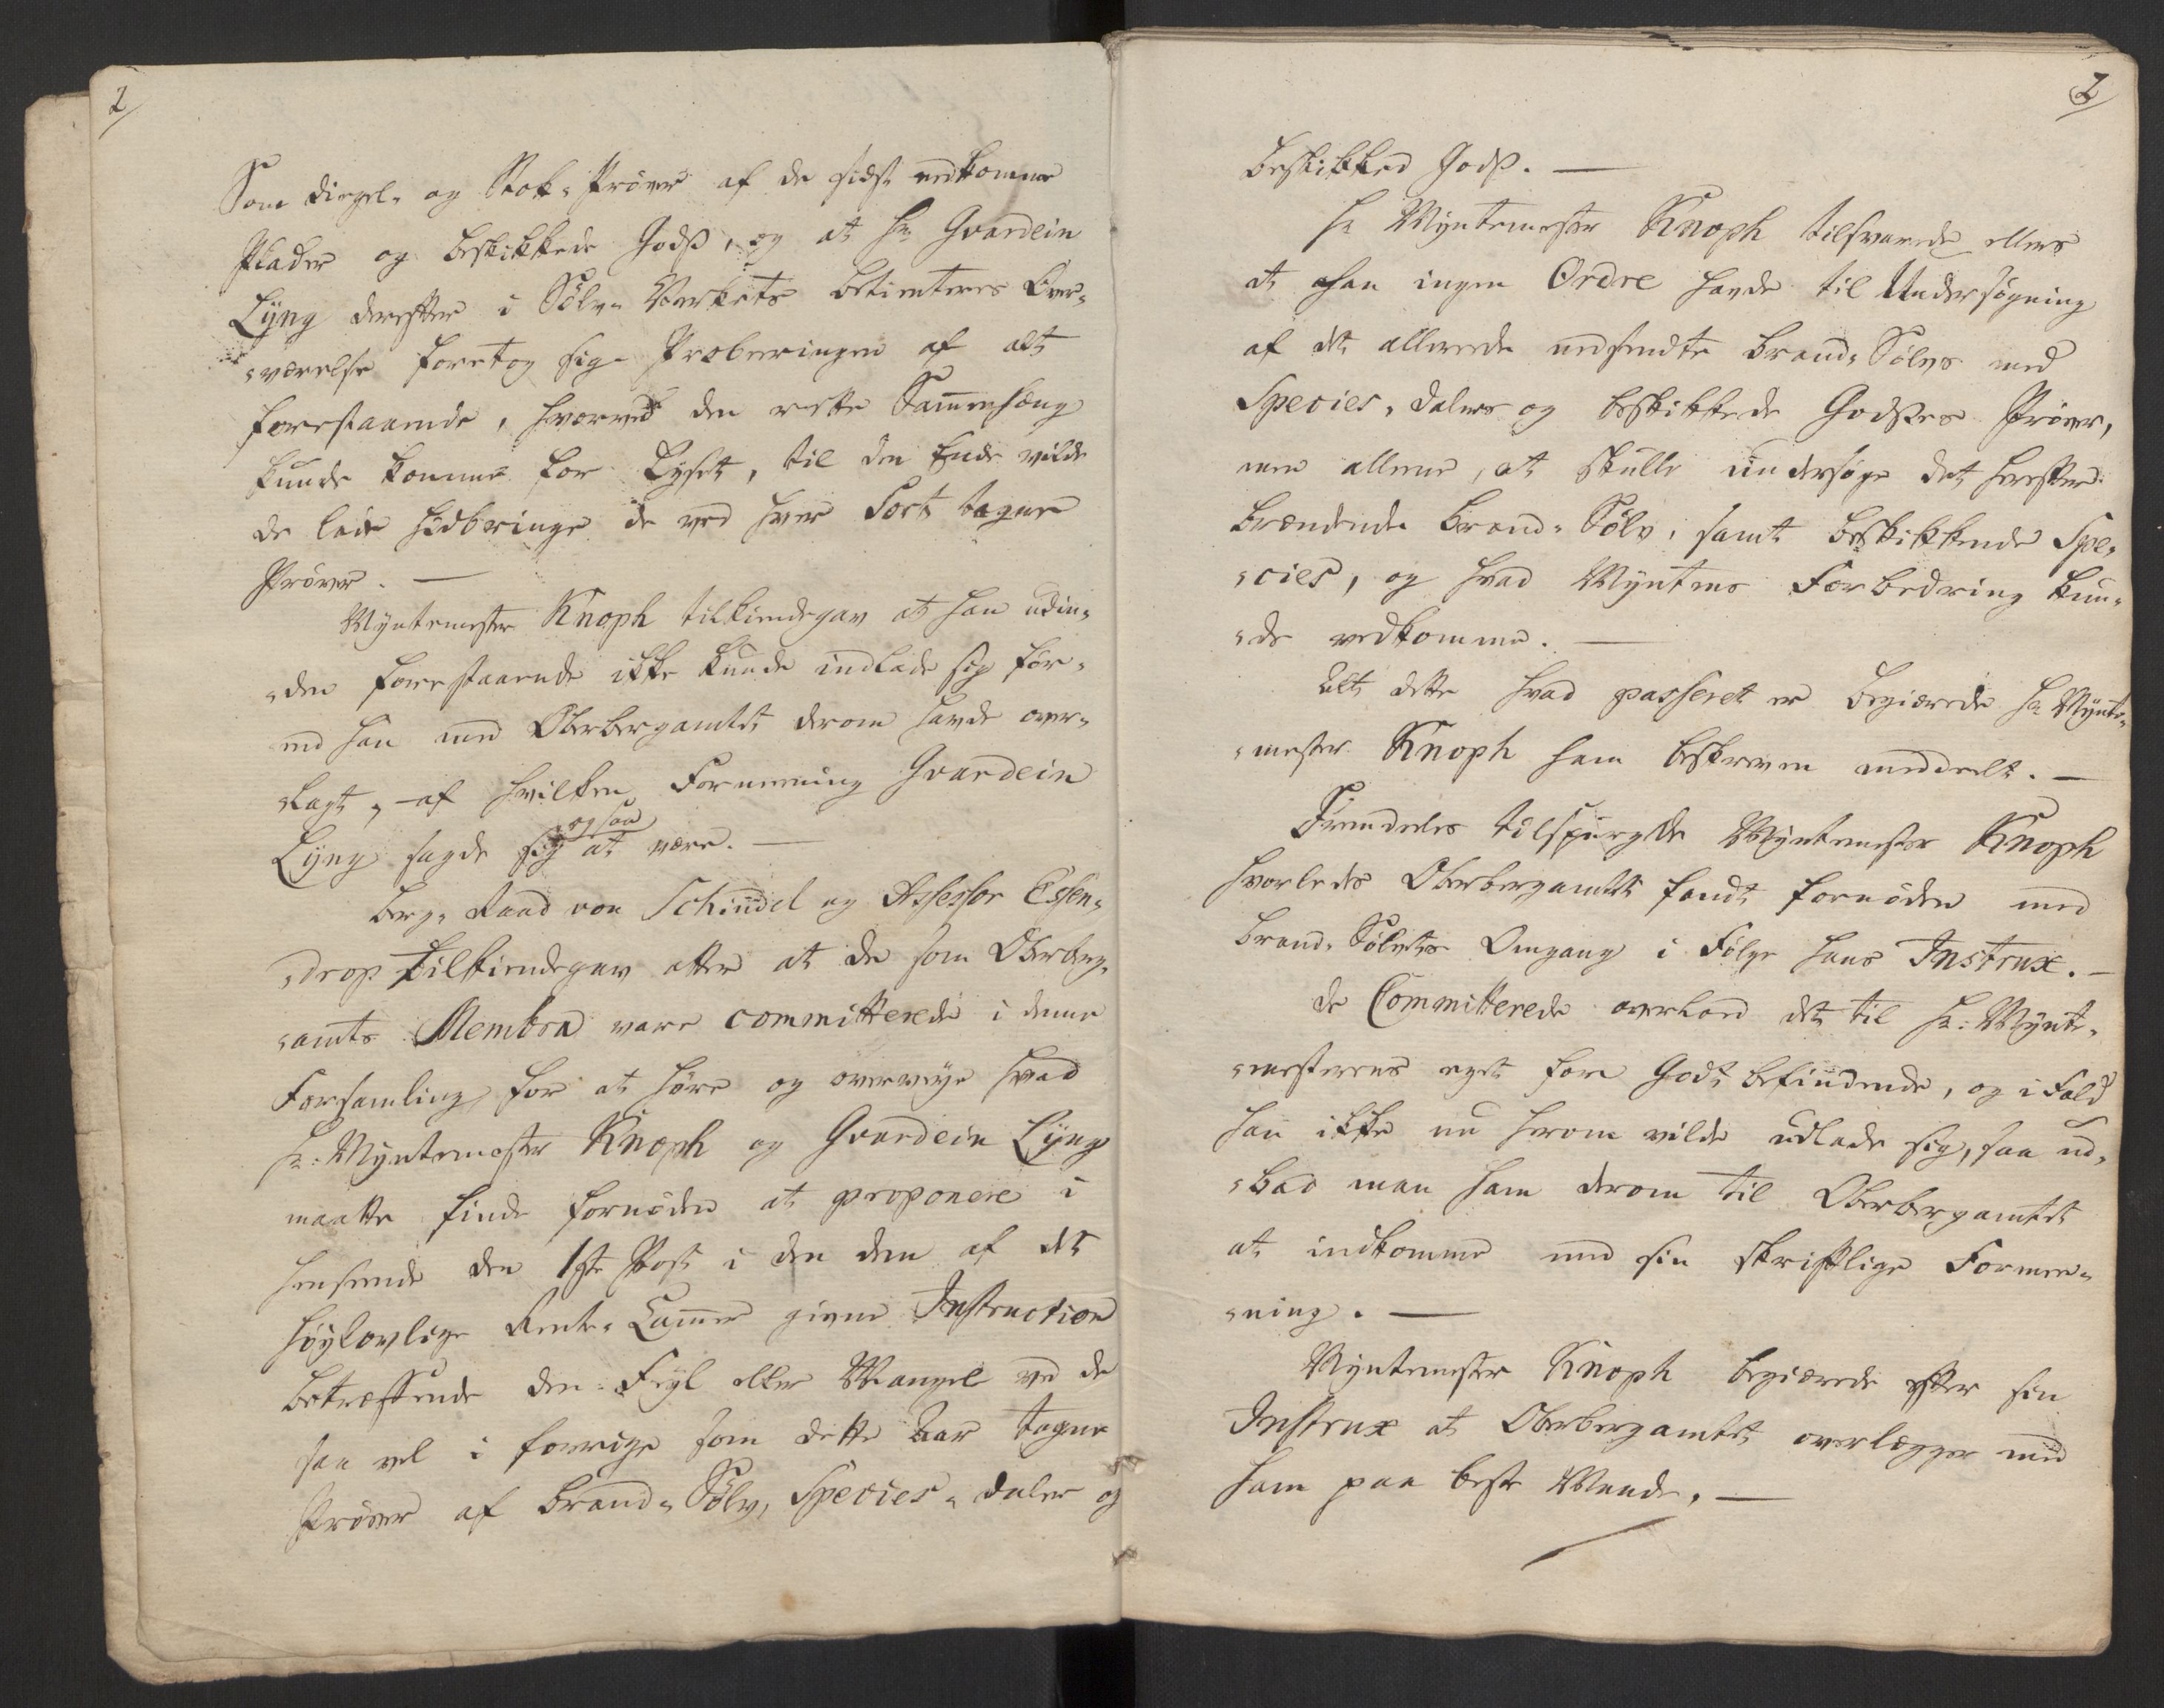 1/
Som Diegel- og Stok-Prøver af de sidst nedkomne
Plader og beskikkede Gods, og at Hr Gvardein
Lyng derefter i Sølv-Verkets Betienteres Over-
-værelse foretog sig Proberingen af alt
forestaaende, hvorved den rette Sammenhæng
kunde komme for Lyset, til den Ende vilde
de lade hidbringe de ved hver Sort tagne
Prøver. —
Myntemester Knoph tilkiendegav at han udin-
-den forestaaende ikke kunde indlade sig før-
end han med Oberbergamtet derom havde over-
-lagt, af hvilken Formening Gvardein
Lyng sagde sig ogsaa at være. —
Berg-Raad von Schindel og Assessor Essen-
-drop tilkiendegav atter at de som Oberberg-
-amts Membra vare committerede i denne
Forsamling for at høre og overveye hvad
Hr: Myntemester Knoph og Gvardein Lyng
maatte finde fornøden at proponere i
henseende den 1ste Post i den dem af det
Høylovlige Rente-Cammer givne Instruction
betræffende den Feyl eller Mangel ved de
saa vel i forrige som dette Aar tagne
Prøver af Brand-Sølv, Species-Daler og
2/
beskikked Gods. —
Hr Myntemester Knoph tilsvarede ellers
at han ingen Ordre havde til Undersøgning
af det allerede nedsendte Brand-Sølvs med
Species-Dalers og beskikkede Godses Prøver,
men allene, at skulle undersøge det herefter
brændende Brand-Sølv, samt beskikkende Spe-
-cies, og hvad Myntens Forbedring kun-
-de vedkomme. —
Alt dette hvad passeret er begiærede Hr Mynte-
-mester Knoph ham beskreven meddeelt. —
Fremdeles tilspurgde Myntemester Knoph
hvorledes Oberbergamtet fandt fornøden med
Brand-Sølvets Omgang i Følge hans Instrux. —
De Committerede overlod det til Hr: Mynte-
-mesterens eget for Godt befindende, og i Fald
han ikke nu herom vilde udlade sig, saa ud-
-bad man ham derom til Oberbergamtet
at indkomme med sin skriftlige Formee-
-ning. —
Myntemester Knoph begiærede efter sin
Instrux at Oberbergamtet overlægger med
ham paa beste Maade. —